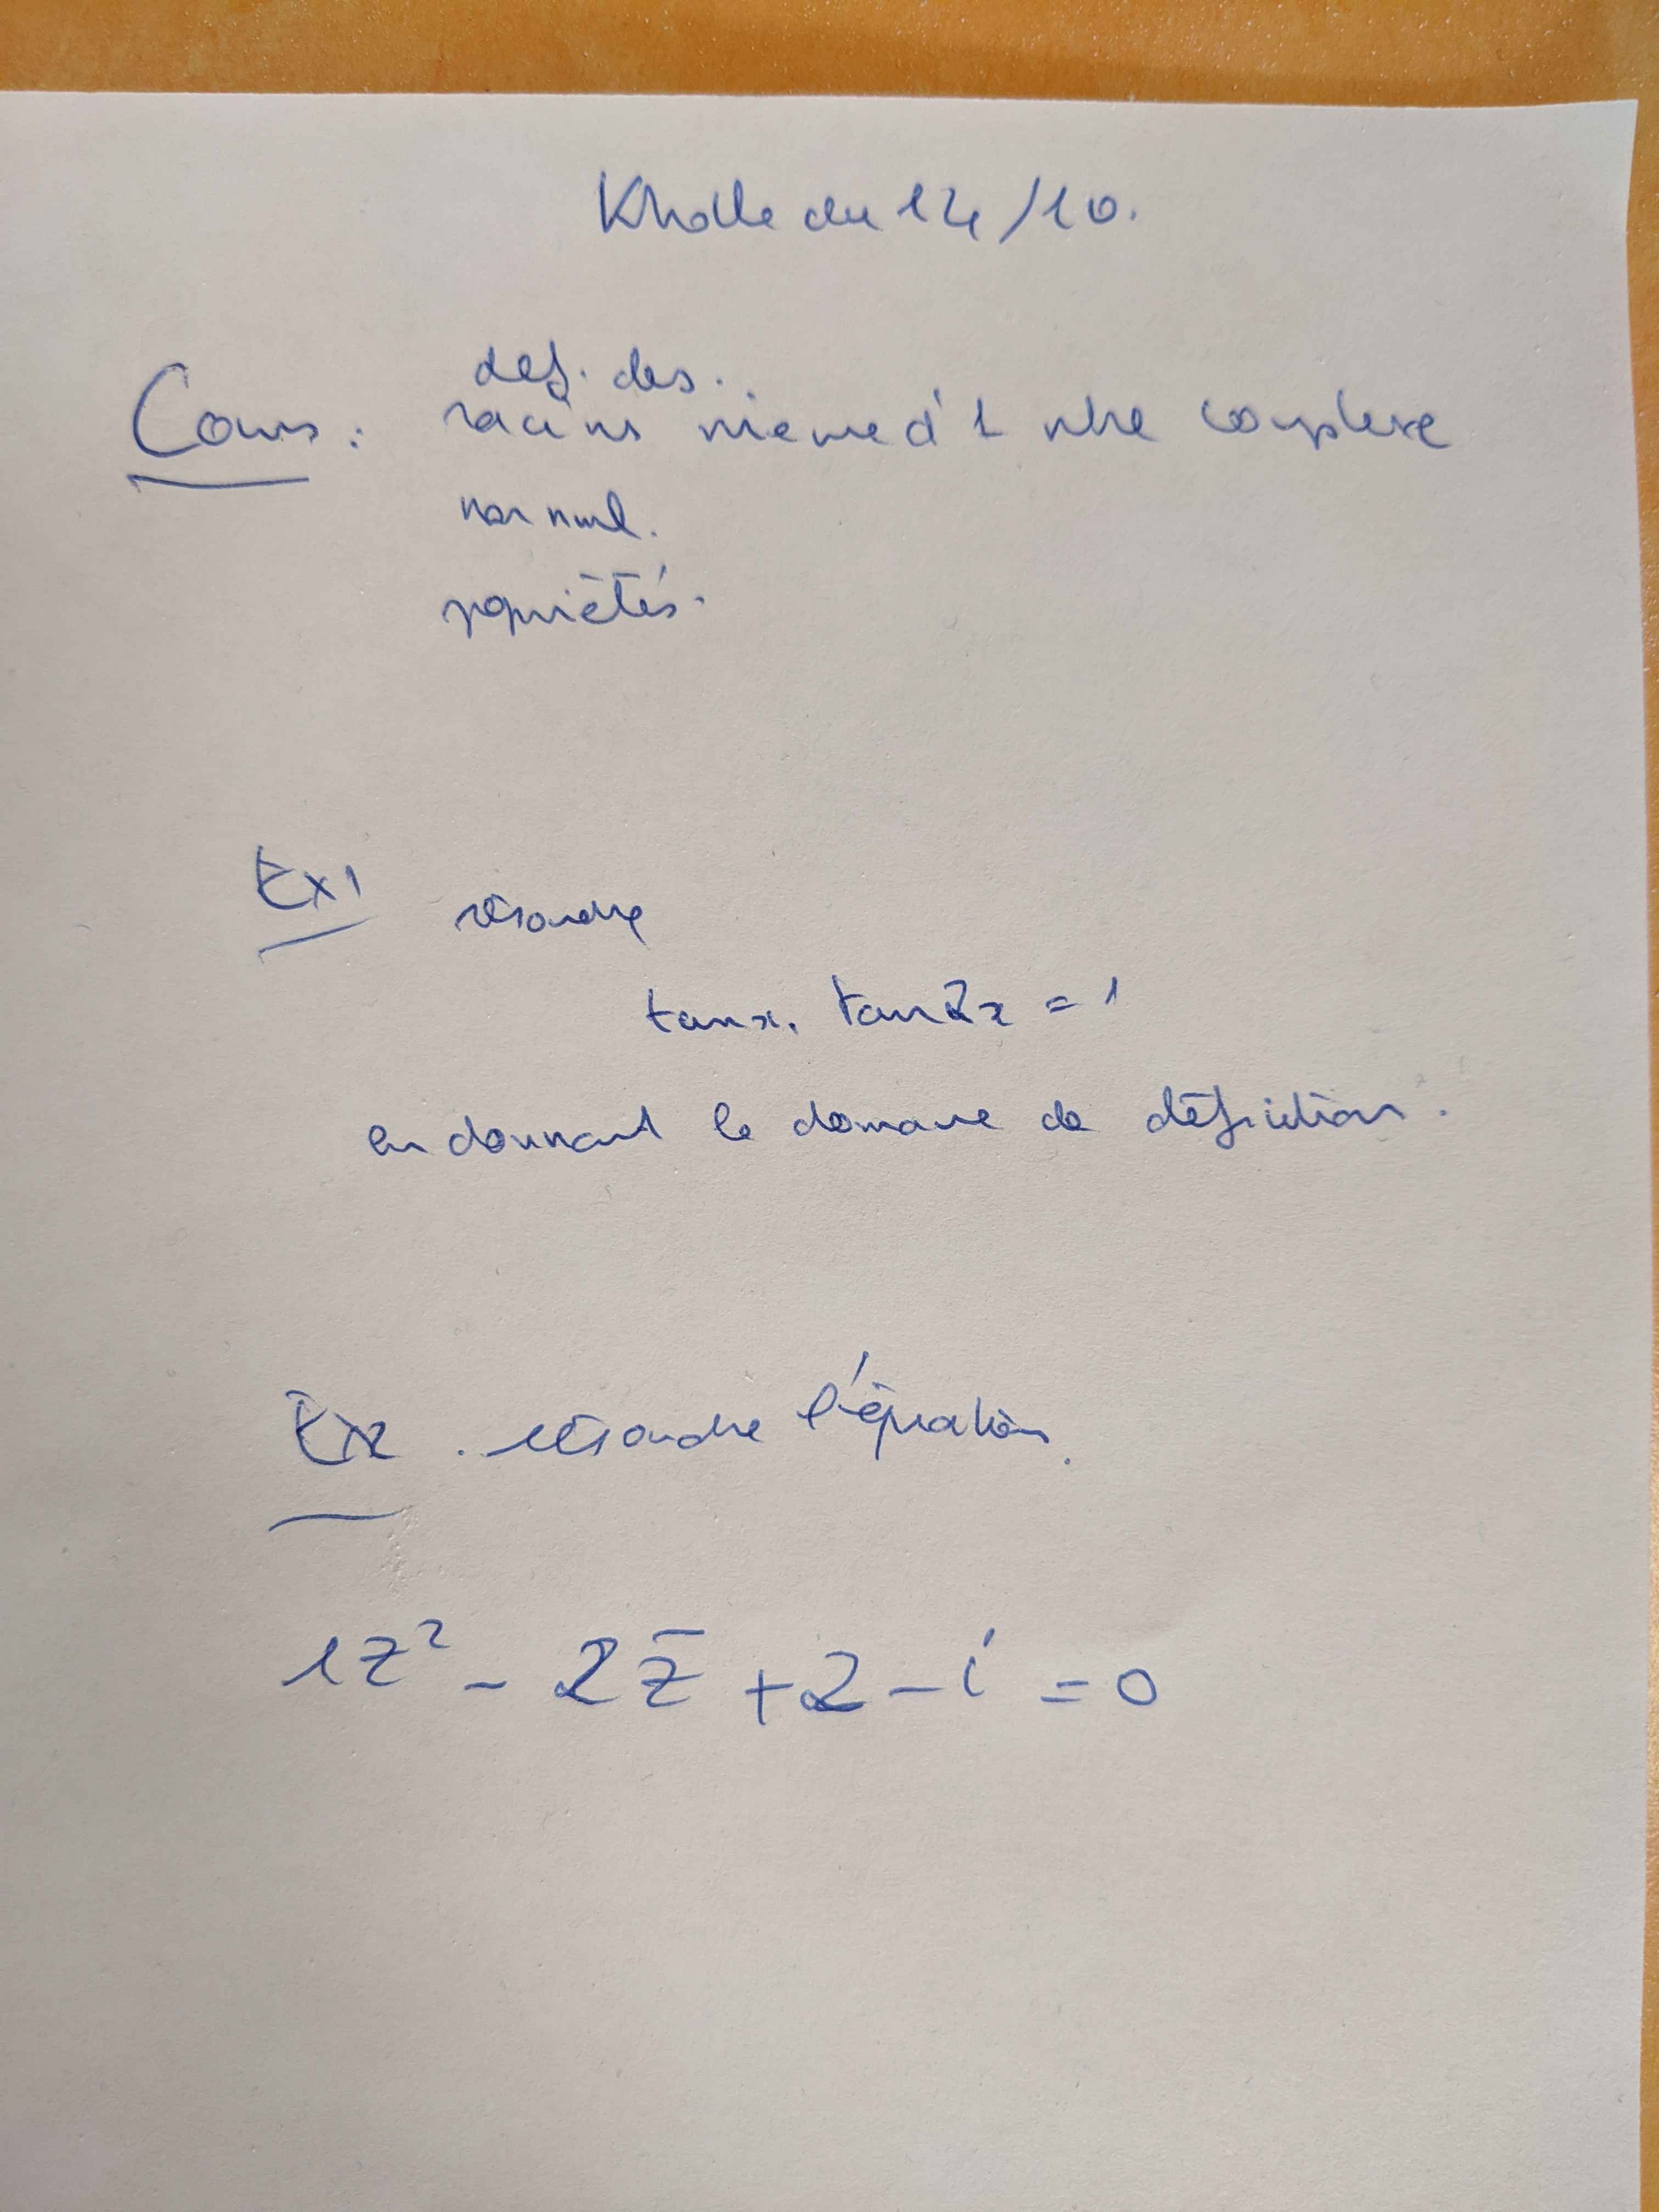 Kholle du 14/10.
def. des.
Cours : racines nieme d'1 nbre complexe
non nul.
propriétés.
Ex1 résoudre
tanx. tan2x = 1
en donnant le domaine de définition.
Ex2 . résoudre l'équation.
1z² - 2z̅ + 2 - i = 0